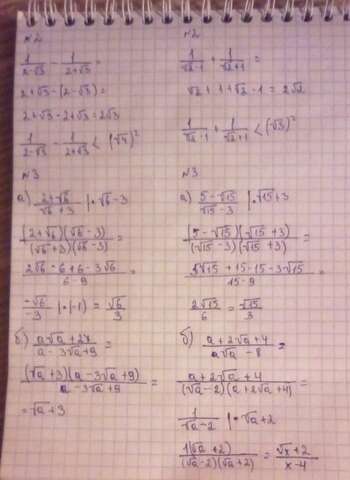 №2
1/(2-√3) - 1/(2+√3) =
2+√3 - (2-√3) =
2+√3 - 2+√3 = 2√3
1/(2-√3) - 1/(2+√3) < (√4)²
№3
а) (2+√6)/(√6+3) | · √6-3
((2+√6)(√6-3))/((√6+3)(√6-3)) =
(2√6 - 6 + 6 - 3√6)/(6-9) =
(-√6)/(-3) | · (-1) = √6/3
б) (a√a + 27)/(a - 3√a + 9) =
((√a+3)(a - 3√a + 9))/(a - 3√a + 9) =
= √a + 3
№2
1/(√2-1) + 1/(√2+1) =
√2 + 1 + √2 - 1 = 2√2
1/(√2-1) + 1/(√2+1) < (√3)²
№3
а) (5-√15)/(√15-3) | · √15+3
((5-√15)(√15+3))/((√15-3)(√15+3)) =
(5√15 + 15 - 15 - 3√15)/(15-9) =
2√15/6 = √15/3
б) (a + 2√a + 4)/(a√a - 8) =
(a + 2√a + 4)/((√a-2)(a + 2√a + 4)) =
1/(√a-2) | · √a+2
1(√a+2)/((√a-2)(√a+2)) = (√x+2)/(x-4)